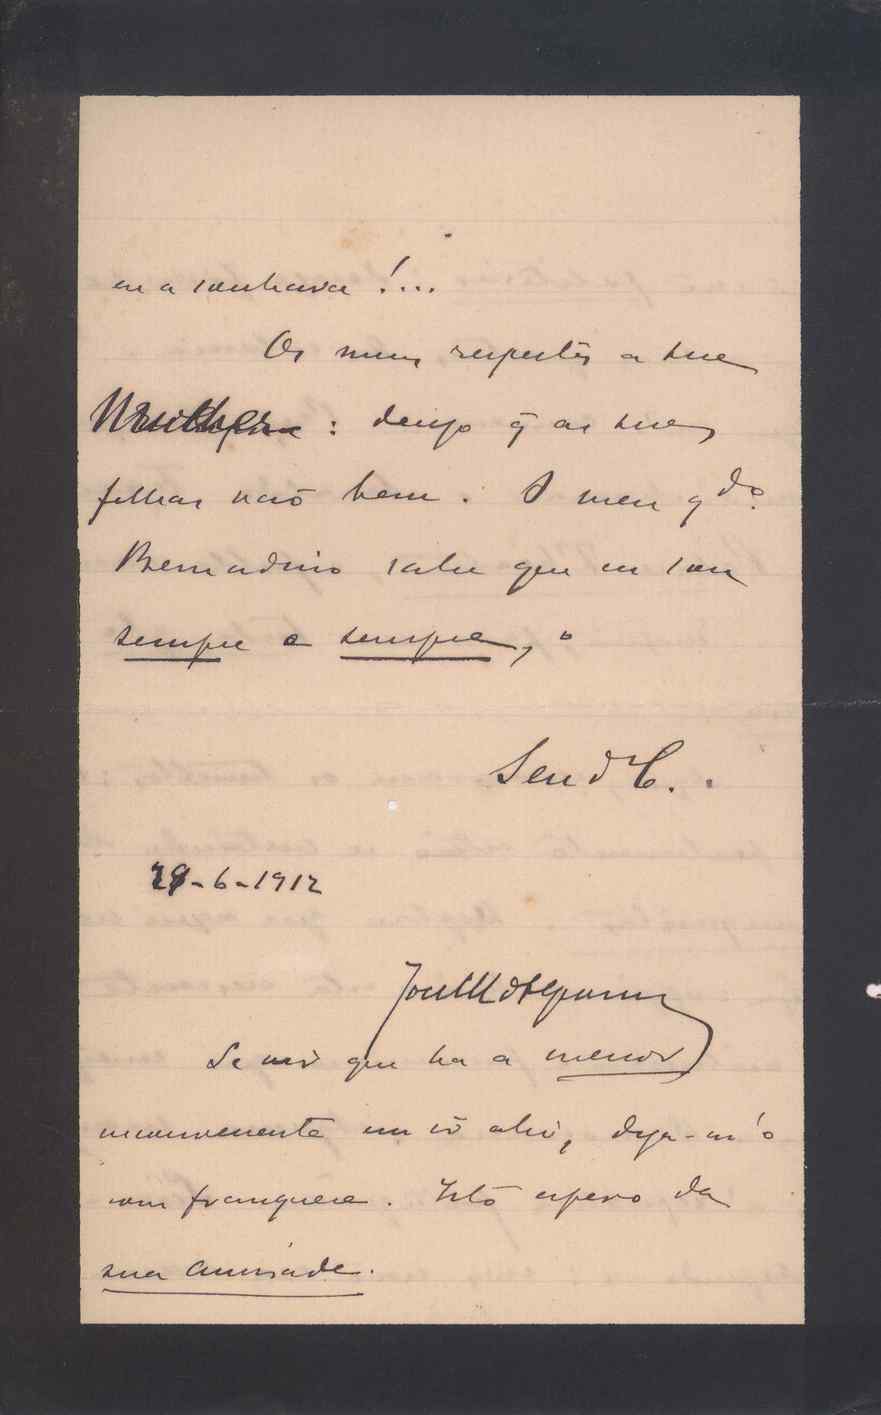 eu a sonhava!...
Os meus respeitos a sua
: desejo q̃ as suas
filhas vão bem. O meu q.do
Bernardino sabe que eu sou
sempre e sempre, o
Seu d
29-6-1912
Se vir que ha a menor
inconveniente em ir ahi, diga-m'o
com franquesa. Isto espero da
sua amisade.